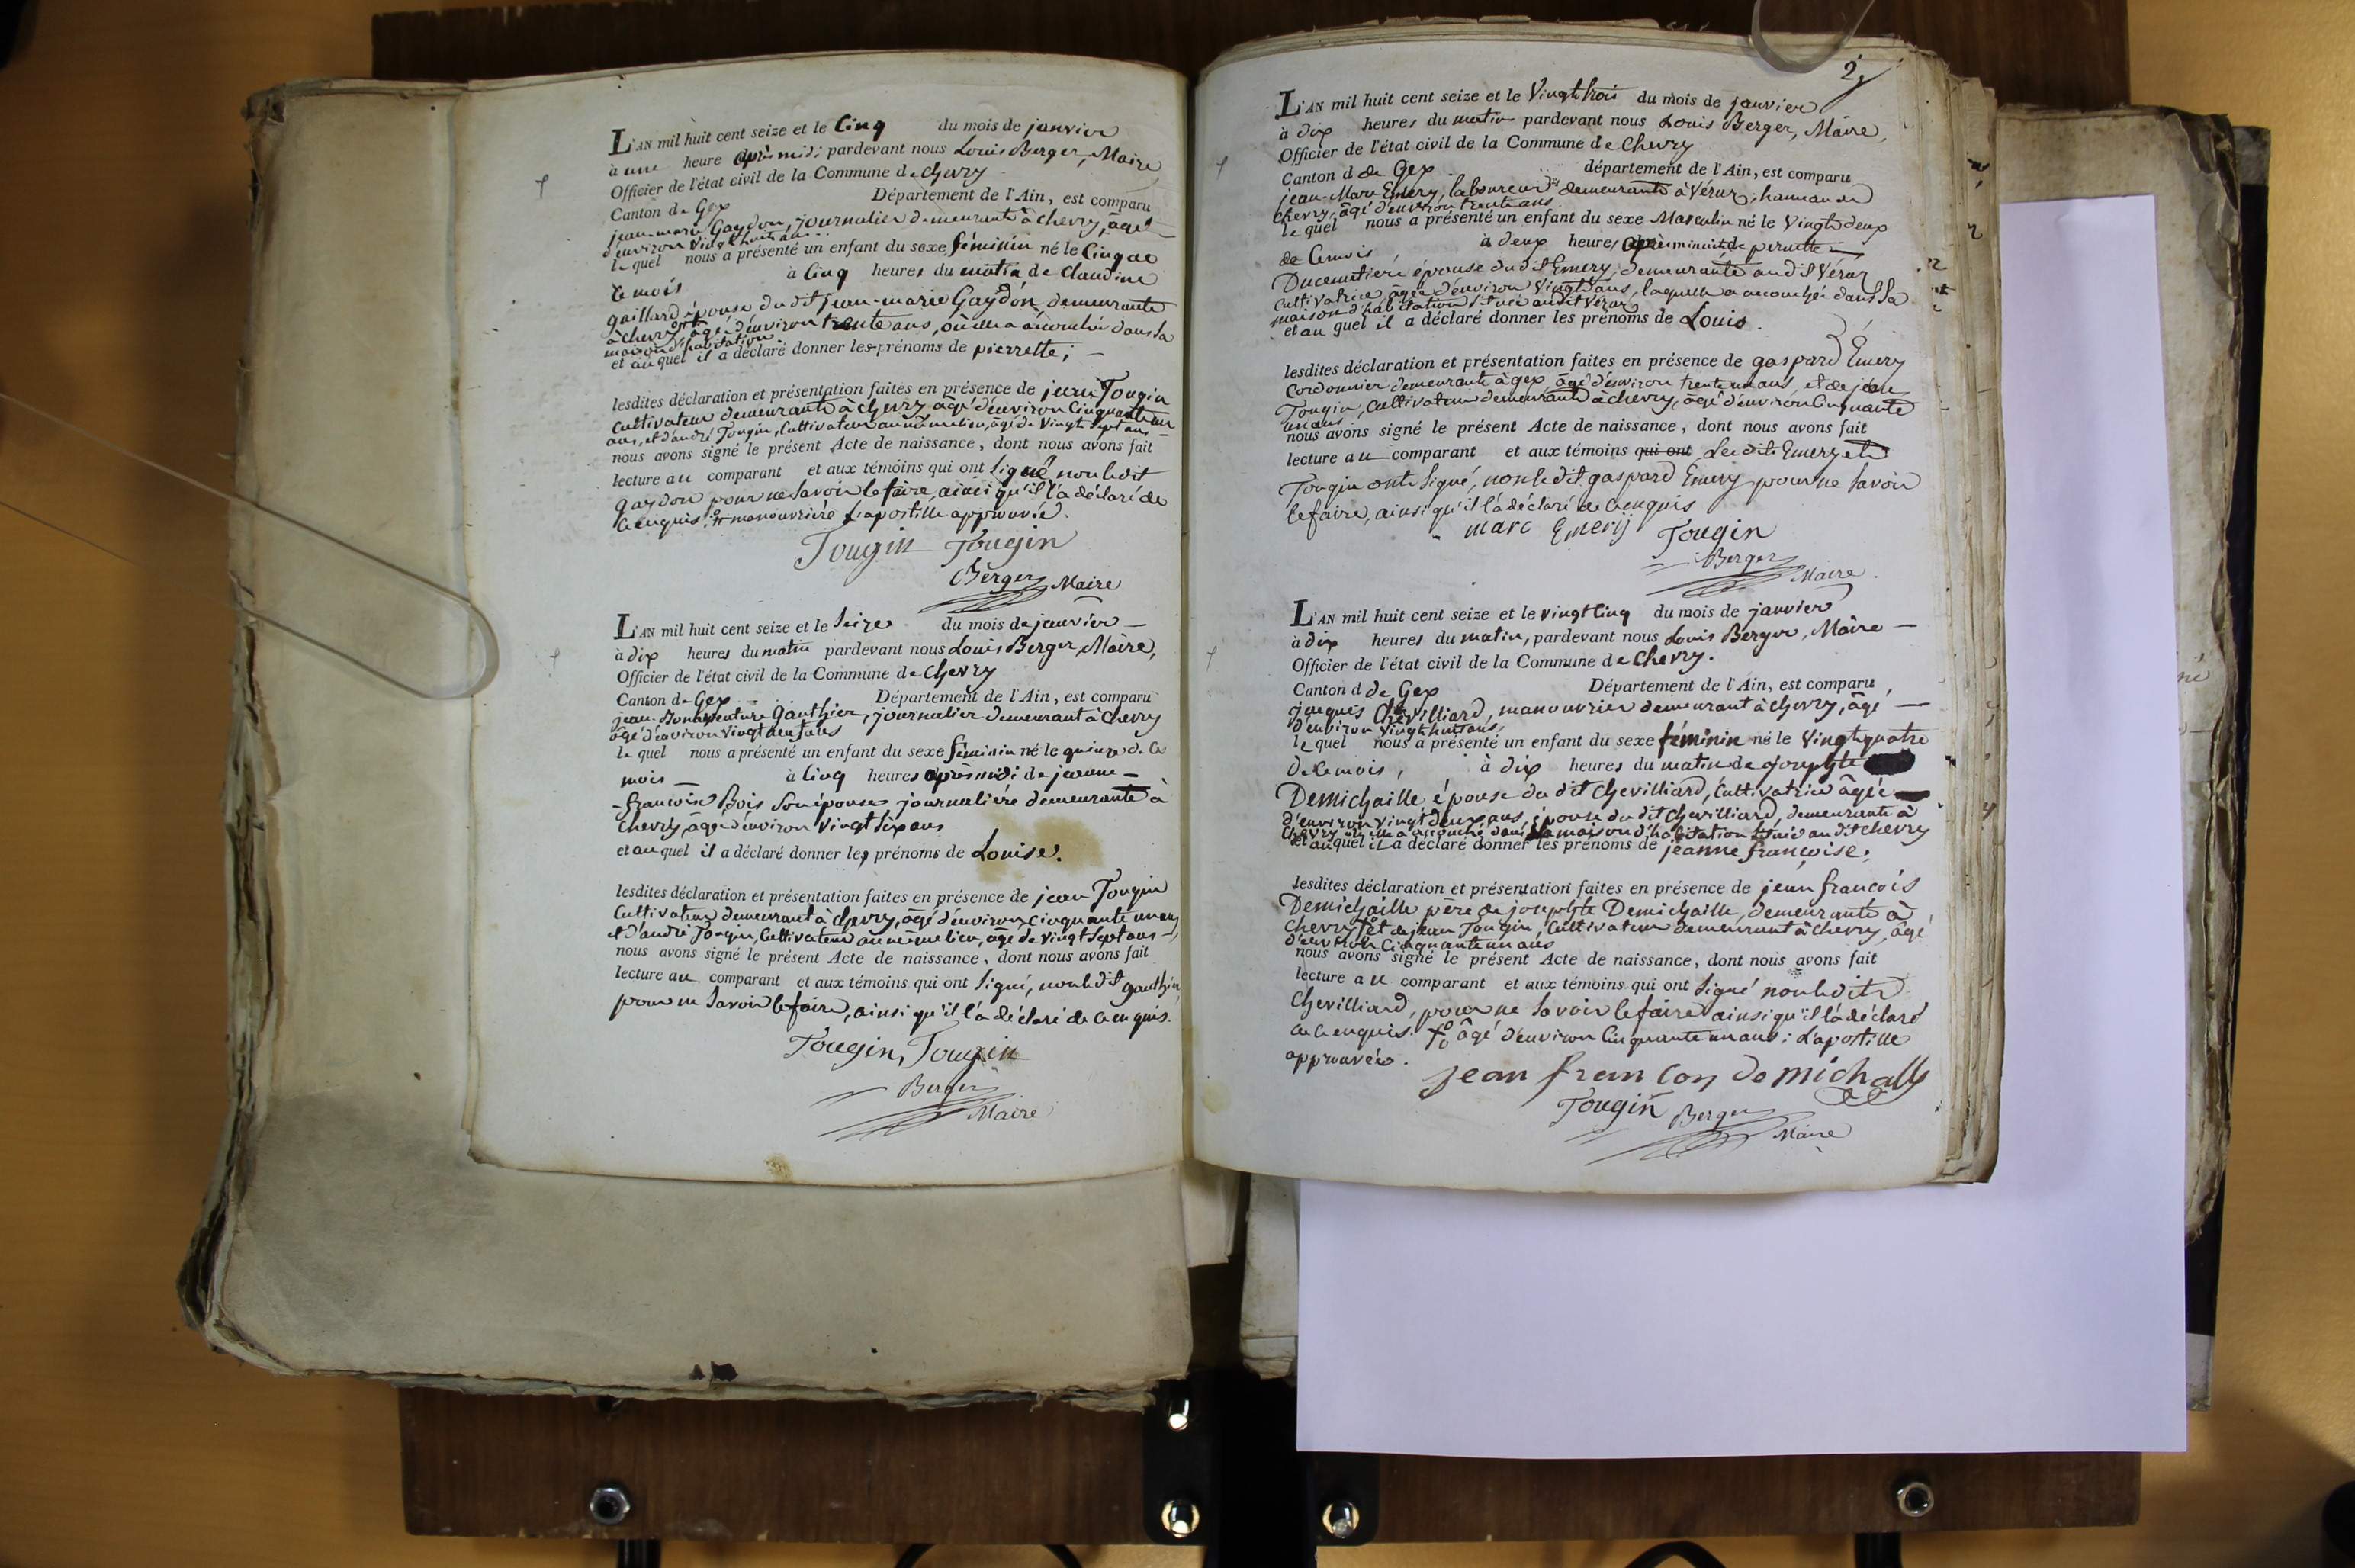 L'AN mil huit cent seize et le Cinq du mois de janvier
à une heure après midi pardevant nous Louis Berger, Maire
Officier de l'état civil de la Commune de Chevry
Canton de Gex Département de l'Ain, est comparu
jean-marie Gaydon, journalier demeurant à chevry, âgé
d'environ vingt huit ans
le quel nous a présenté un enfant du sexe féminin né le Cinq de
ce mois à Cinq heures du matin de Claudine
gaillard épouse du dit jean-marie Gaydon demeurante
à chevry âgée d'environ trente ans, où elle a accouchée dans sa
maison d'habitation
et auquel il a déclaré donner les prénoms de pierrette;
lesdites déclaration et présentation faites en présence de jean Tougin
Cultivateur demeurant à chevry âgé d'environ Cinquante un
ans, et d'andré Tougin, Cultivateur au même lieu, âgé de vingt Sept ans
nous avons signé le présent Acte de naissance, dont nous avons fait
lecture au comparant et aux témoins qui ont Signé non le dit
gaydon pour ne Savoir le faire, ainsi qu'il l'a déclaré de
ce enquis. manouvrière l'apostille approuvée.
Tougin Tougin
Berger Maire
L'AN mil huit cent seize et le Seize du mois de janvier
à dix heures du matin pardevant nous Louis Berger, Maire,
Officier de l'état civil de la Commune de Chevry
Canton de Gex Département de l'Ain, est comparu
jean-Bonaventure Gauthier, journalier demeurant à Chevry
âgé d'environ vingt neuf ans
le quel nous a présenté un enfant du sexe féminin né le quinze de Ce
mois à Cinq heures après midi de jeanne
françoise Bois Son épouse journalière demeurante à
Chevry, âgée d'environ vingt Six ans
et au quel il a déclaré donner les prénoms de Louise.
lesdites déclaration et présentation faites en présence de jean Tougin
Cultivateur demeurant à chevry, âgé d'environ Cinquante un ans
et d'andré Tougin, Cultivateur au même lieu, âgé de vingt Sept ans
nous avons signé le présent Acte de naissance, dont nous avons fait
lecture au comparant et aux témoins qui ont Signé, non le dit gauthier
pour ne Savoir le faire, ainsi qu'il l'a déclaré de ce enquis.
Tougin, Tougin
Berger
Maire
2
L'AN mil huit cent seize et le Vingt trois du mois de janvier
à dix heures du matin pardevant nous Louis Berger, Maire,
Officier de l'état civil de la Commune de Chevry
Canton d de Gex département de l'Ain, est comparu
jean-Marc Emery, laboureur demeurant à Véraz, hameau de
Chevry, âgé d'environ trente ans
le quel nous a présenté un enfant du sexe Masculin né le Vingt deux
de Ce mois à deux heures après minuit de pernette
Ducemetiere épouse du dit Emery, demeurante au dit Véraz
Cultivatrice, âgée d'environ vingt ans, laquelle a accouchée dans Sa
maison d'habitation située au dit Véraz
et au quel il a déclaré donner les prénoms de Louis.
lesdites déclaration et présentation faites en présence de gaspard Emery
Cordonnier demeurant à gex, âgé d'environ trente un ans, et de jean
Tougin, Cultivateur demeurant à chevry, âgé d'environ Cinquante
un ans
nous avons signé le présent Acte de naissance, dont nous avons fait
lecture au comparant et aux témoins qui ont Lesdits Emery et
Tougin ont Signé, non le dit gaspard Emery pour ne Savoir
le faire, ainsi qu'il l'a déclaré de ce enquis
marc Emerij Tougin
Berger
Maire
L'AN mil huit cent seize et le vingt Cinq du mois de janvier
à dix heures du matin, pardevant nous Louis Berger, Maire
Officier de l'état civil de la Commune de Chevry.
Canton d de Gex Département de l'Ain, est comparu
jaques Chevilliard, manouvrier demeurant à chevry, âgé
d'environ vingt huit ans,
le quel nous a présenté un enfant du sexe féminin né le Vingt quatre
de Ce mois, à dix heures du matin de josephte
Demichaille épouse du dit Chevilliard, Cultivatrice âgée
d'environ vingt deux ans, épouse du dit Chevilliard, demeurante à
Chevry où elle a accouché dans Sa maison d'habitation Située au dit Chevry
et auquel il a déclaré donner les prénoms de jeanne françoise;
lesdites déclaration et présentation faites en présence de jean françois
Demichaille père de josephte Demichaille, demeurant à
Chevry et de jean Tougin, Cultivateur demeurant à chevry, âgé
d'environ Cinquante un ans
nous avons signé le présent Acte de naissance, dont nous avons fait
lecture au comparant et aux témoins qui ont Signé non le dit
Chevilliard, pour ne Savoir le faire ainsi qu'il l'a déclaré
de ce enquis. âgé d'environ Cinquante un ans; L'apostille
approuvée.
jean francoy demichally
Tougin Berger
Maire